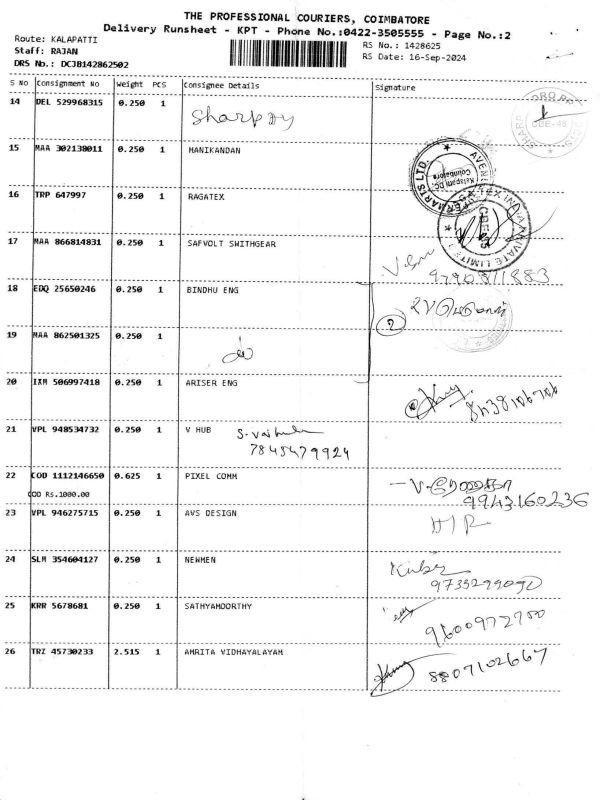 THE PROFESSIONAL COURIERS, COIMBATORE
Delivery Runsheet - KPT - Phone No.:0422-3505555 - Page No.:2
Route: KALAPATTI
Staff: RAJAN
DRS No.: DCJB142862502
RS No.: 1428625
RS Date: 16-Sep-2024
S No Consignment No Weight PCS Consignee Details Signature
14 DEL 529968315 0.250 1
15 MAA 302138011 0.250 1 MANIKANDAN
16 TRP 647997 0.250 1 RAGATEX
17 MAA 866814831 0.250 1 SAFVOLT SWITHGEAR
18 EDQ 25650246 0.250 1 BINDHU ENG
2
19 MAA 862501325 0.250 1
20 IXM 506997418 0.250 1 ARISER ENG
21 VPL 948534732 0.250 1 V HUB
7845479924
22 COD 1112146650 0.625 1 PIXEL COMM
COD Rs.1000.00
9943160236
23 VPL 946275715 0.250 1 AVS DESIGN
24 SLM 354604127 0.250 1 NEWMEN
25 KRR 5678681 0.250 1 SATHYAMOORTHY
26 TRZ 45730233 2.515 1 AMRITA VIDHAYALAYAM
8807102667